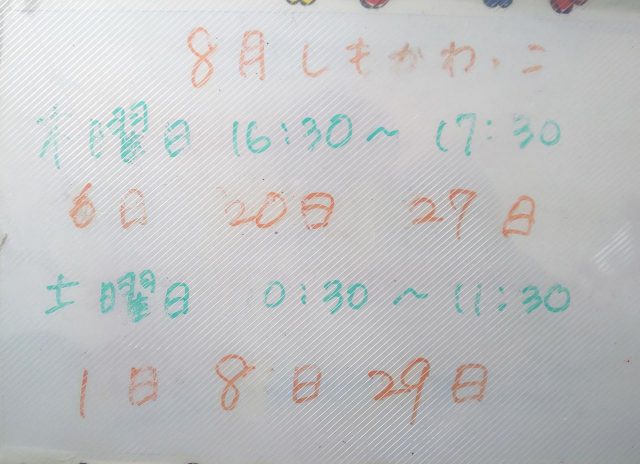 8月しもかわ・こ
木曜日 16:30~17:30
6日 20日 27日
土曜日 10:30~11:30
1日 8日 29日